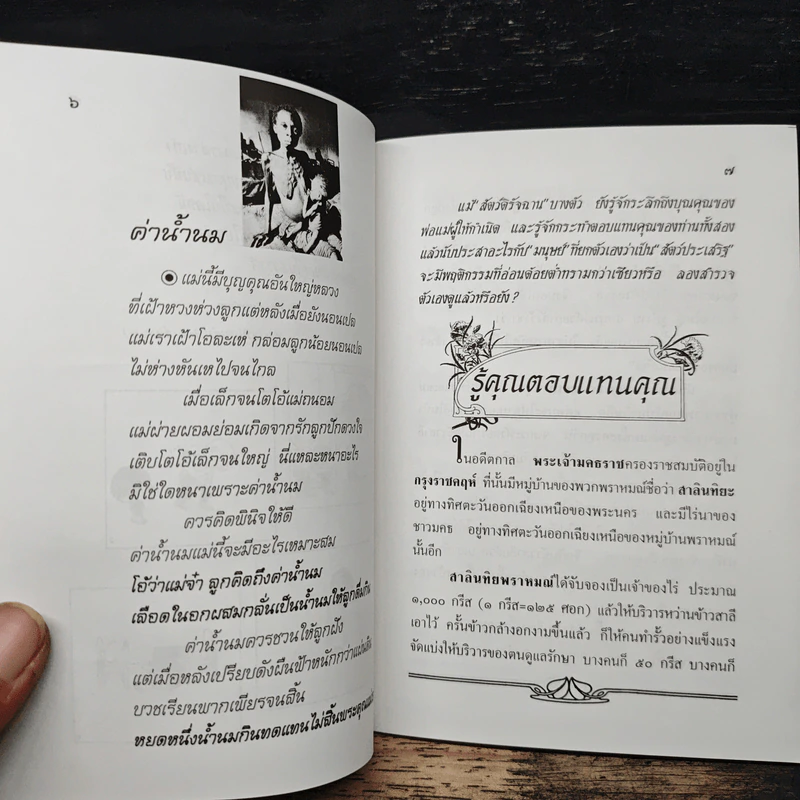 ๖
ค่าน้ำนม
แม่นี้มีบุญคุณอันใหญ่หลวง
ที่เฝ้าหวงห่วงลูกแต่หลังเมื่อยังนอนเปล
แม่เราเฝ้าโอละเห่ กล่อมลูกน้อยนอนเปล
ไม่ห่างหันเหไปจนไกล
เมื่อเล็กจนโตโอ้แม่ถนอม
แม่ผ่ายผอมย่อมเกิดจากรักลูกปักดวงใจ
เติบโตโอ้เล็กจนใหญ่ นี่แหละหนาอะไร
มิใช่ใดหนาเพราะค่าน้ำนม
ควรคิดพินิจให้ดี
ค่าน้ำนมแม่นี้จะมีอะไรเหมาะสม
โอ้ว่าแม่จ๋า ลูกคิดถึงค่าน้ำนม
เลือดในอกผสมกลั่นเป็นน้ำนมให้ลูกดื่มกิน
ค่าน้ำนมควรชวนให้ลูกฝัง
แต่เมื่อหลังเปรียบดังผืนฟ้าหนักกว่าแผ่นดิน
บวชเรียนพากเพียรจนสิ้น
หยดหนึ่งน้ำนมกินทดแทนไม่สิ้นพระคุณ
๗
แม้"สัตว์ดิรัจฉาน"บางตัว ยังรู้จักระลึกถึงบุญคุณของ
พ่อแม่ผู้ให้กำเนิด และรู้จักกระทำตอบแทนคุณของท่านทั้งสอง
แล้วนับประสาอะไรกับ"มนุษย์"ที่ยกตัวเองว่าเป็น"สัตว์ประเสริฐ"
จะมีพฤติกรรมที่อ่อนด้อยต่ำทรามกว่าเชียวหรือ ลองสำรวจ
ตัวเองดูแล้วหรือยัง ?
รู้คุณตอบแทนคุณ
ในอดีตกาล พระเจ้ามคธราชครองราชสมบัติอยู่ใน
กรุงราชคฤห์ ที่นั้นมีหมู่บ้านของพวกพราหมณ์ชื่อว่า สาลินทิยะ
อยู่ทางทิศตะวันออกเฉียงเหนือของพระนคร และมีไร่นาของ
ชาวมคธ อยู่ทางทิศตะวันออกเฉียงเหนือของหมู่บ้านพราหมณ์
นั้นอีก
สาลินทิยพราหมณ์ได้จับจองเป็นเจ้าของไร่ ประมาณ
๑,๐๐๐ กรีส (๑ กรีส=๑๒๕ ศอก) แล้วให้บริวารหว่านข้าวสาลี
เอาไว้ ครั้นข้าวกล้างอกงามขึ้นแล้ว ก็ให้คนทำรั้วอย่างแข็งแรง
จัดแบ่งให้บริวารของตนดูแลรักษา บางคนก็ ๕๐ กรีส บางคนก็